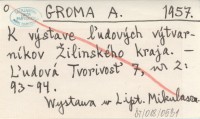 o GROMA A. 1957.
K výstave ľudových výtvar-
níkov Žilinského kraja. —
Ľudová Tvorivosť 7, nr 2:
93-94.
Wystawa w Lipt. Mikulasza